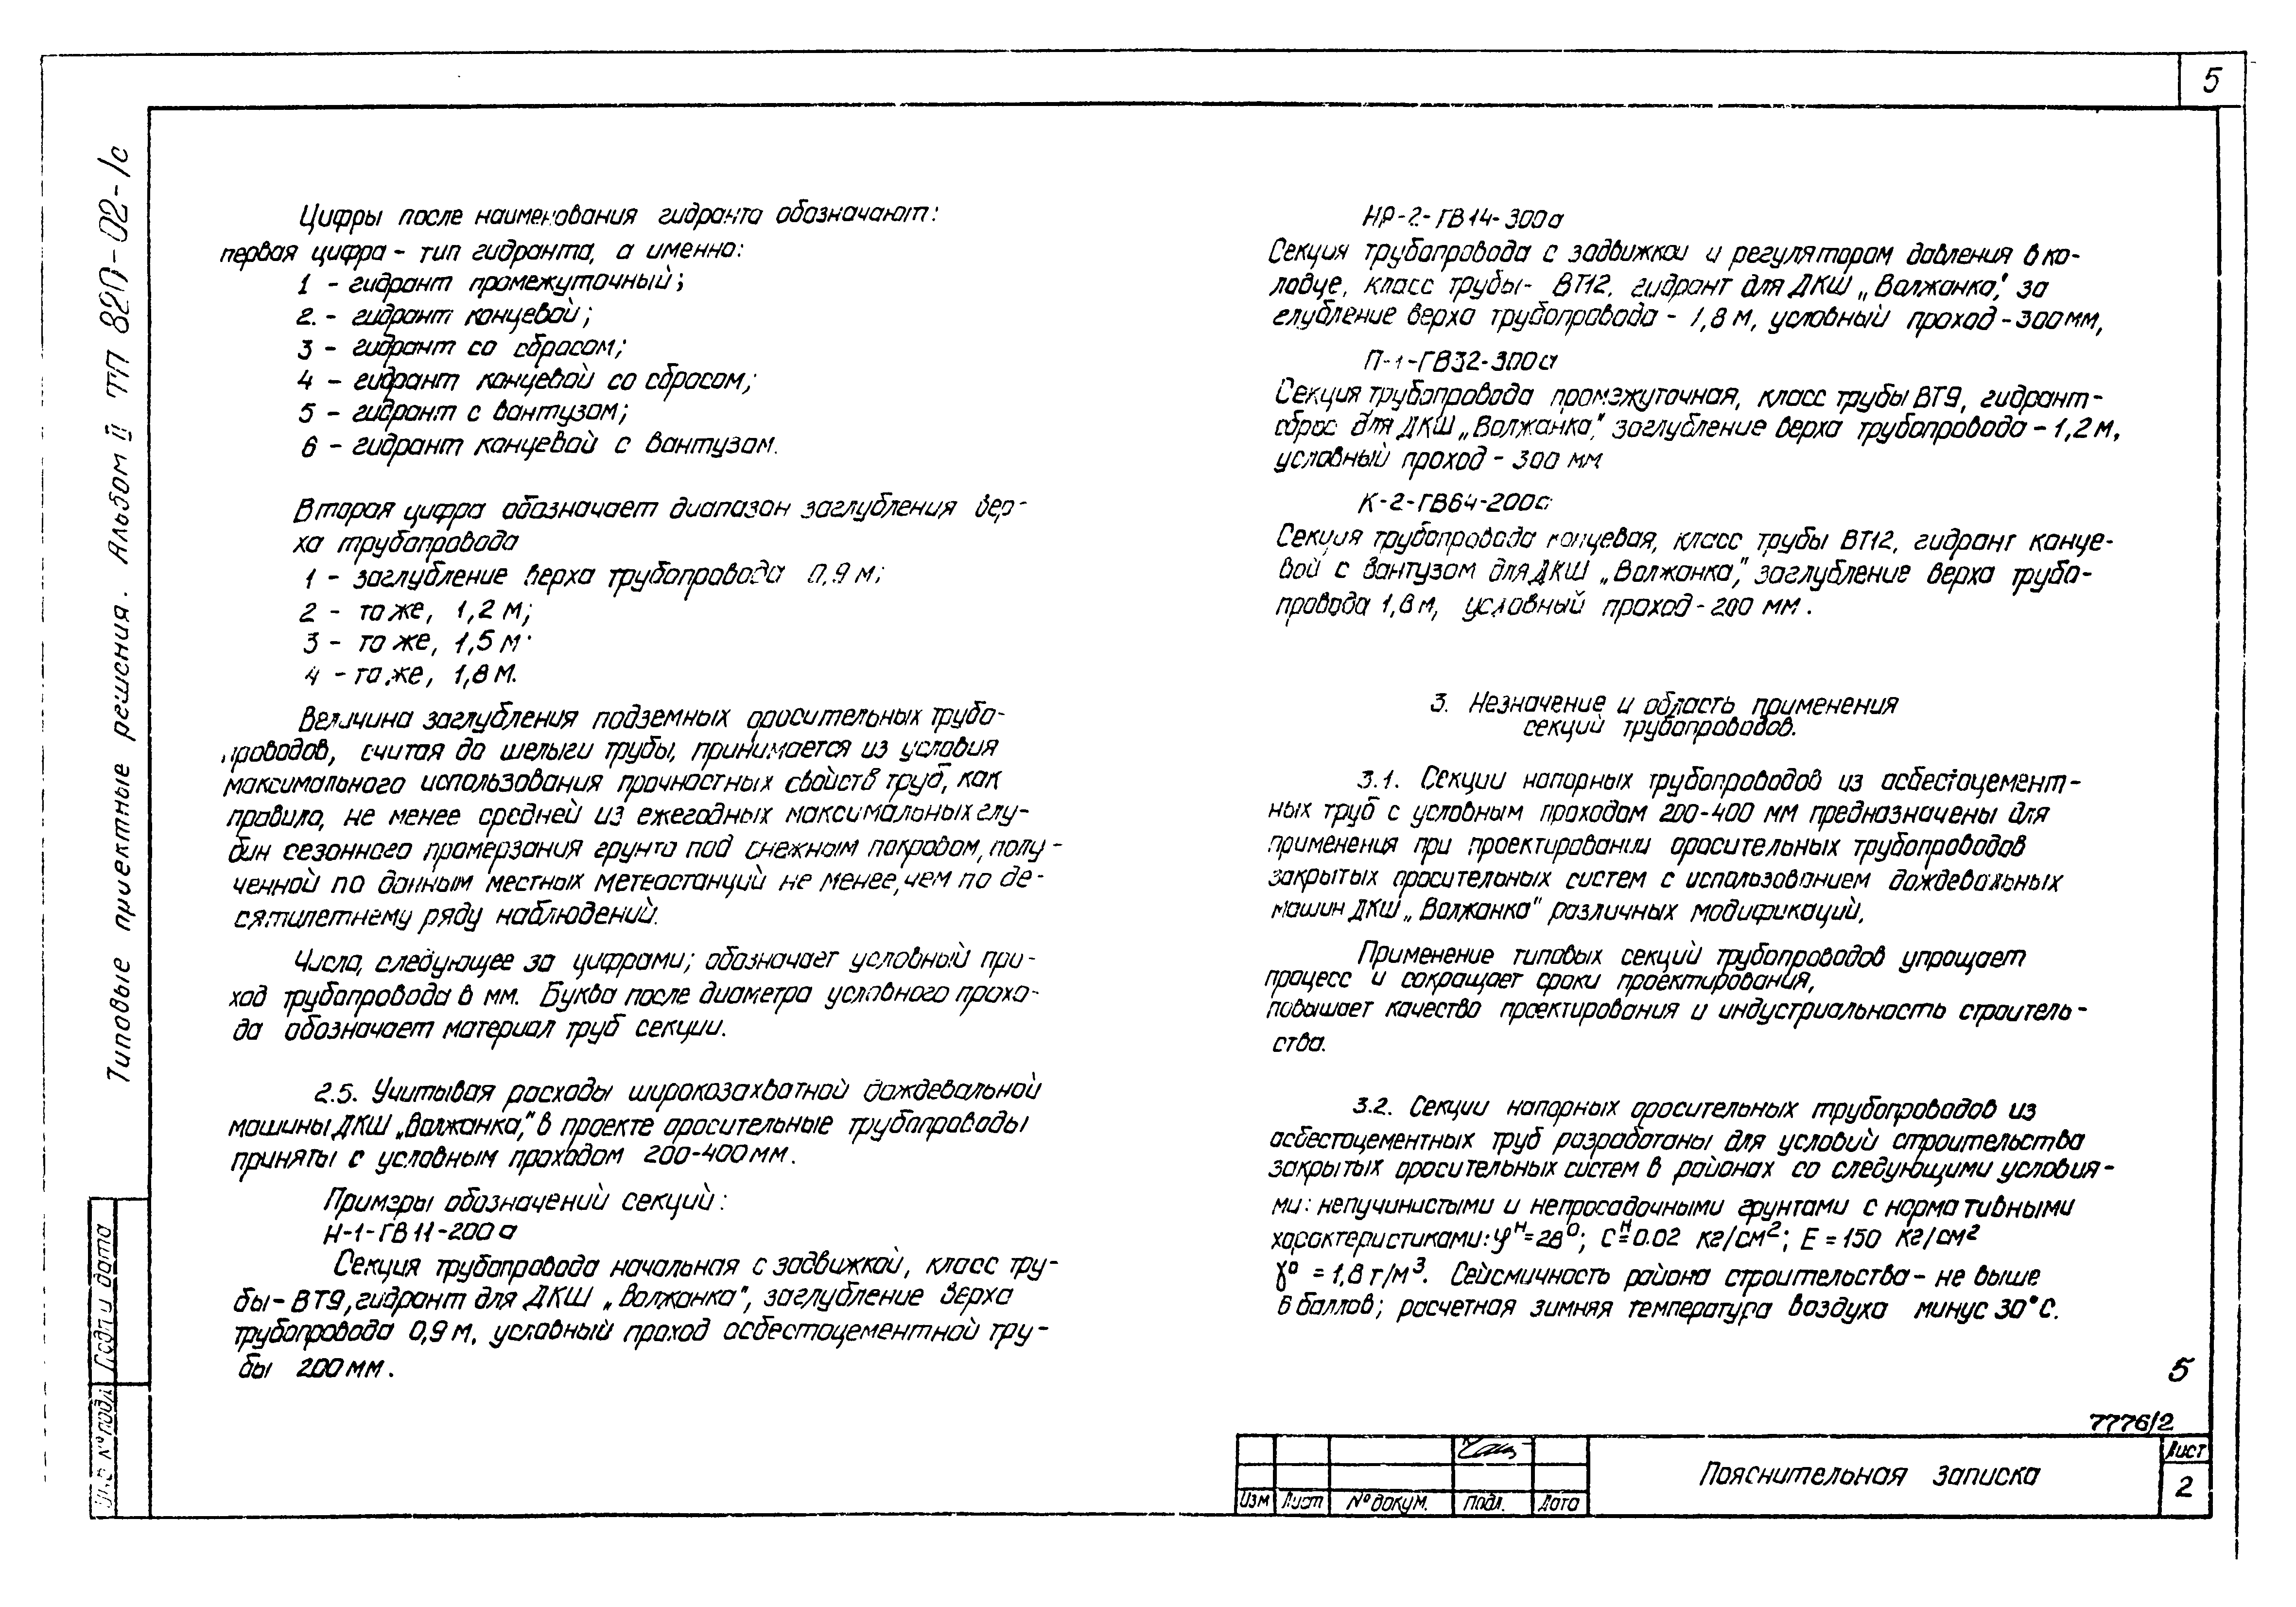 5
Типовые проектные решения. Альбом II ТП 820-02-1с
Цифры после наименования гидранта обозначают:
первая цифра - тип гидранта, а именно:
1 - гидрант промежуточный;
2. - гидрант концевой;
3 - гидрант со сбросом;
4 - гидрант концевой со сбросом;
5 - гидрант с вантузом;
6 - гидрант концевой с вантузом.
Вторая цифра обозначает диапазон заглубления вер-
ха трубопровода
1 - заглубление верха трубопровода 0,9 м;
2 - то же, 1,2 м;
3 - то же, 1,5 м.
4 - то же, 1,8 м.
Величина заглубления подземных оросительных трубо-
проводов, считая до шелыги трубы, принимается из условия
максимального использования прочностных свойств труб, как
правило, не менее средней из ежегодных максимальных глу-
бин сезонного промерзания грунта под снежным покровом, полу-
ченной по данным местных метеостанций не менее, чем по де-
сятилетнему ряду наблюдений.
Число, следующее за цифрами; обозначает условный про-
ход трубопровода в мм. Буква после диаметра условного прохо-
да обозначает материал труб секции.
2.5. Учитывая расходы широкозахватной дождевальной
машины ДКШ „Волжанка," в проекте оросительные трубопроводы
приняты с условным проходом 200-400 мм.
Примеры обозначений секций:
Н-1-ГВ11-200а
Секция трубопровода начальная с задвижкой, класс тру-
бы-ВТ9, гидрант для ДКШ „Волжанка", заглубление верха
трубопровода 0,9 м, условный проход асбестоцементной тру-
бы 200 мм.
НР-2-ГВ14-300а
Секция трубопровода с задвижкой и регулятором давления в ко-
лодце, класс трубы- ВТ12, гидрант для ДКШ „Волжанка," за
глубление верха трубопровода - 1,8 м, условный проход - 300 мм,
П-1-ГВ32-300а
Секция трубопровода промежуточная, класс трубы ВТ9, гидрант-
сброс для ДКШ „Волжанка," заглубление верха трубопровода - 1,2 м,
условный проход - 300 мм
К-2-ГВ64-200а
Секция трубопровода концевая, класс трубы ВТ12, гидрант конце-
вой с вантузом для ДКШ „Волжанка," заглубление верха трубо-
провода 1,8 м, условный проход - 200 мм.
3. Незначение и область применения
секций трубопроводов.
3.1. Секции напорных трубопроводов из асбестоцемент-
ных труб с условным проходом 200-400 мм предназначены для
применения при проектировании оросительных трубопроводов
закрытых оросительных систем с использованием дождевальных
машин ДКШ „Волжанка" различных модификаций,
Применение типовых секций трубопроводов упрощает
процесс и сокращает сроки проектирования,
повышает качество проектирования и индустриальность строитель-
ства.
3.2. Секции напорных оросительных трубопроводов из
асбестоцементных труб разработаны для условий строительства
закрытых оросительных систем в районах со следующими условия-
ми: непучинистыми и непросадочными грунтами с нормативными
характеристиками: φᴴ=28⁰; Cᴴ=0.02 кг/см²; Е = 150 кг/см²
γ⁰ = 1,8 т/м³. Сейсмичность района строительства - не выше
6 баллов; расчетная зимняя температура воздуха минус 30°С.
5
7776/2
Изм Лист № докум. Подп. Дата
Пояснительная записка
Лист
2
Подп и дата
Инв № подл